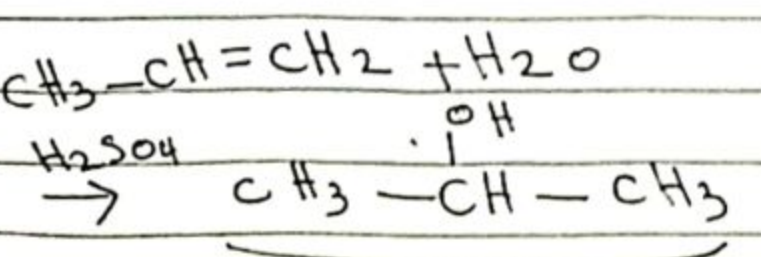 CH3-CH=CH2 +H2O
OH
H2SO4
→ CH3 — CH — CH3